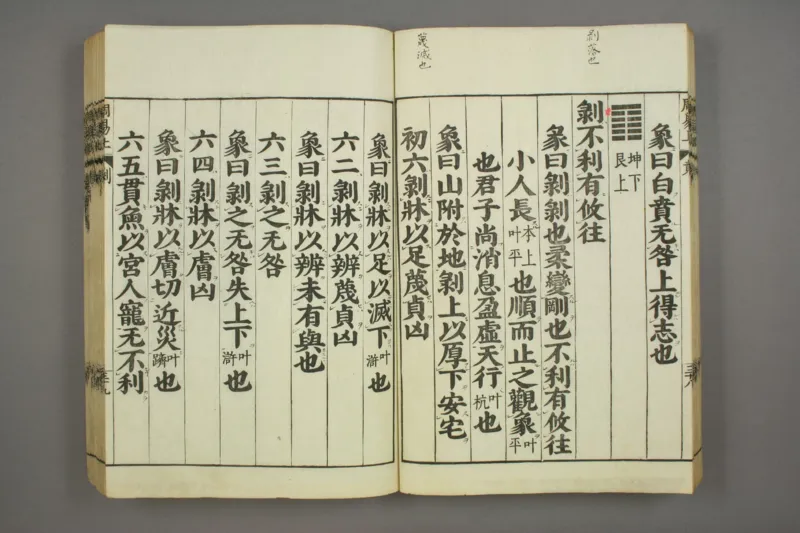 剝落也
蔑滅也
象曰白賁无咎上得志也
䷖
坤下
艮上
剝不利有攸往
彖曰剝剝也柔變剛也不利有攸往
小人長本上叶平也順而止之觀象叶平
也君子尚消息盈虛天行叶杭也
象曰山附於地剝上以厚下安宅
初六剝牀以足蔑貞凶
象曰剝牀以足以滅下叶滸也
六二剝牀以辨蔑貞凶
象曰剝牀以辨未有與也
六三剝之无咎
象曰剝之无咎失上下叶滸也
六四剝牀以膚凶
象曰剝牀以膚切近災叶躋也
六五貫魚以宮人寵无不利
周易上
剝
三十九